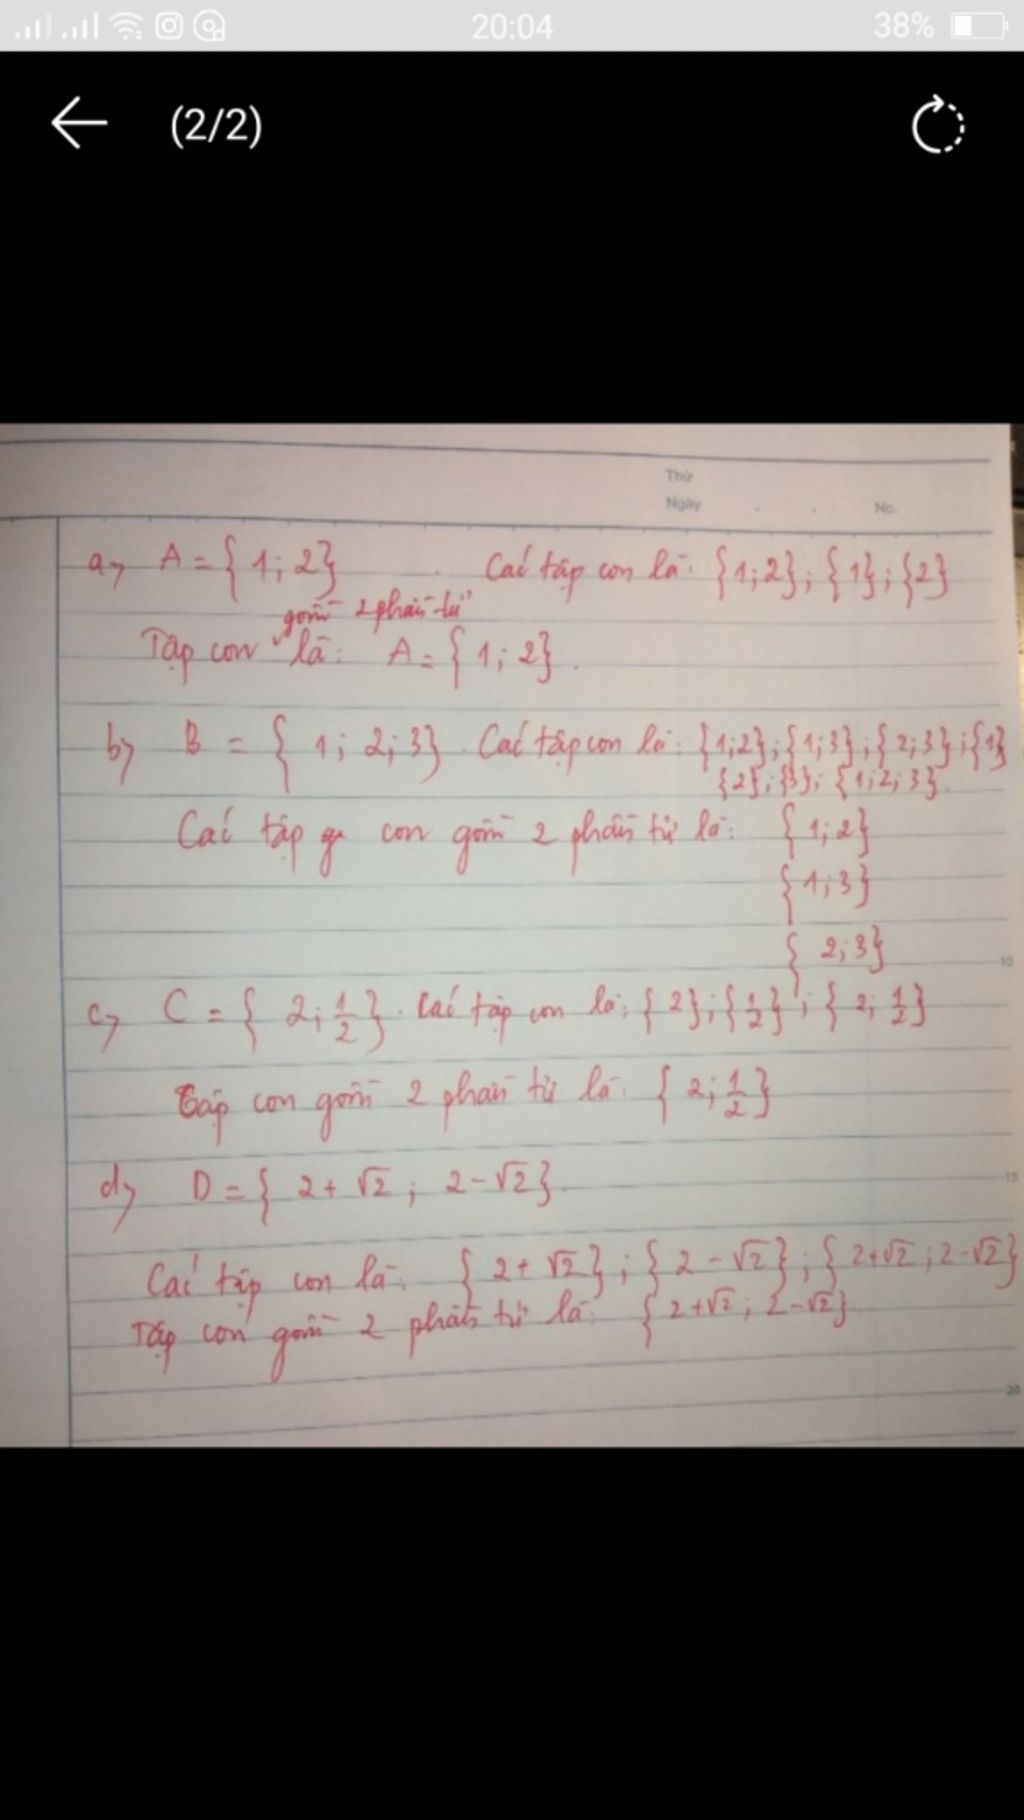 20:04
38%
(2/2)
Thứ
Ngày
No.
a, A = { 1; 2} Các tập con là: {1;2}; {1}; {2}
gồm 2 phần tử
Tập con là: A = { 1; 2}.
b, B = { 1; 2; 3}. Các tập con là: {1;2}; {1;3}; {2;3}; {1}
{2}; {3}; {1;2;3}.
Các tập con gồm 2 phần tử là: { 1; 2}
{ 1; 3}
{ 2; 3}
10
c, C = { 2; 1/2}. Các tập con là: { 2}; {1/2}; { 2; 1/2}
Tập con gồm 2 phần tử là: { 2; 1/2}
d, D = { 2 + √2 ; 2 - √2}.
15
Các tập con là: { 2 + √2}; { 2 - √2}; { 2+√2 ; 2-√2}
Tập con gồm 2 phần tử là: { 2+√2; 2-√2}.
20